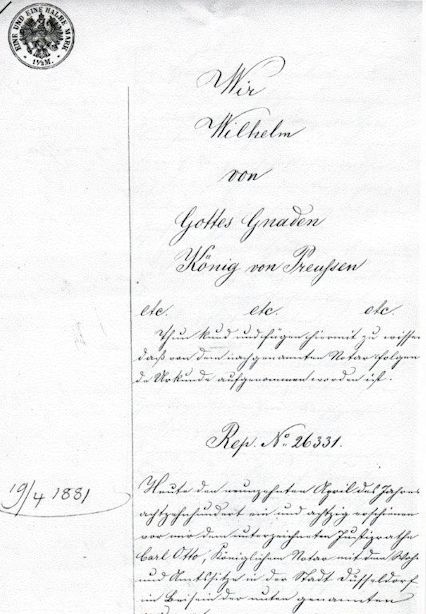 EINE UND EINE HALBE MARK
1½ M.
Wir
Wilhelm
von
Gottes Gnaden
König von Preussen
etc. etc. etc.
Thun kund und fügen hiermit zu wissen
daß von dem nachgenannten Notar folgen
de Urkunde aufgenommen worden ist.
Rep. No 26331.
19/4 1881
Heute den neunzehnten April des Jahres
achtzehnhundert ein und achtzig erschienen
vor mir dem unterzeichneten Justizrathe
Carl Otto, Königlichen Notar mit dem Wohn
und Amtssitze in der Stadt Düsseldorf
im Beisein der unten genannten